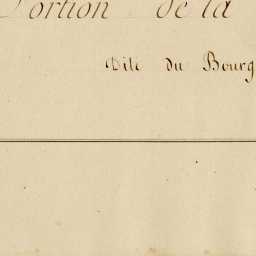 Portion de la
Dite du Bourg